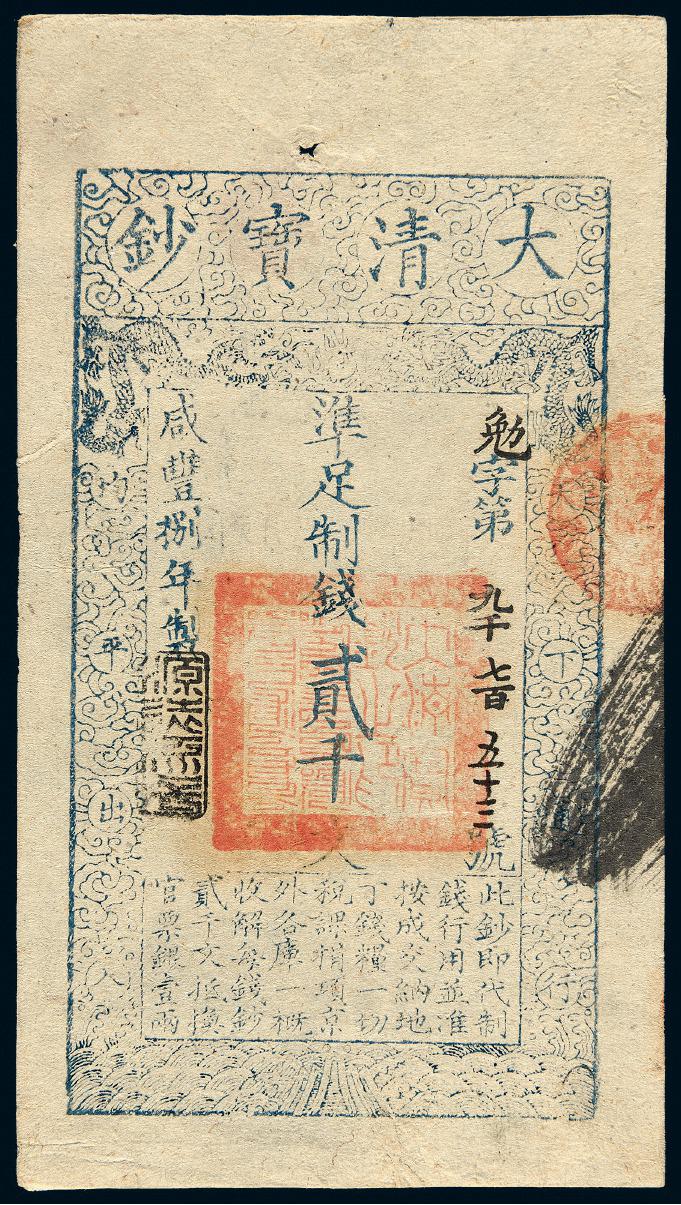 大清寶鈔
天下行
勉字第九千七百五十三號
準足制錢貳千文
咸豐捌年製
均平出入
此鈔即代制
錢行用並准
按成交納地
丁錢糧一切
稅課捐項京
外各庫一概
收解每錢鈔
貳千文抵換
官票銀壹兩